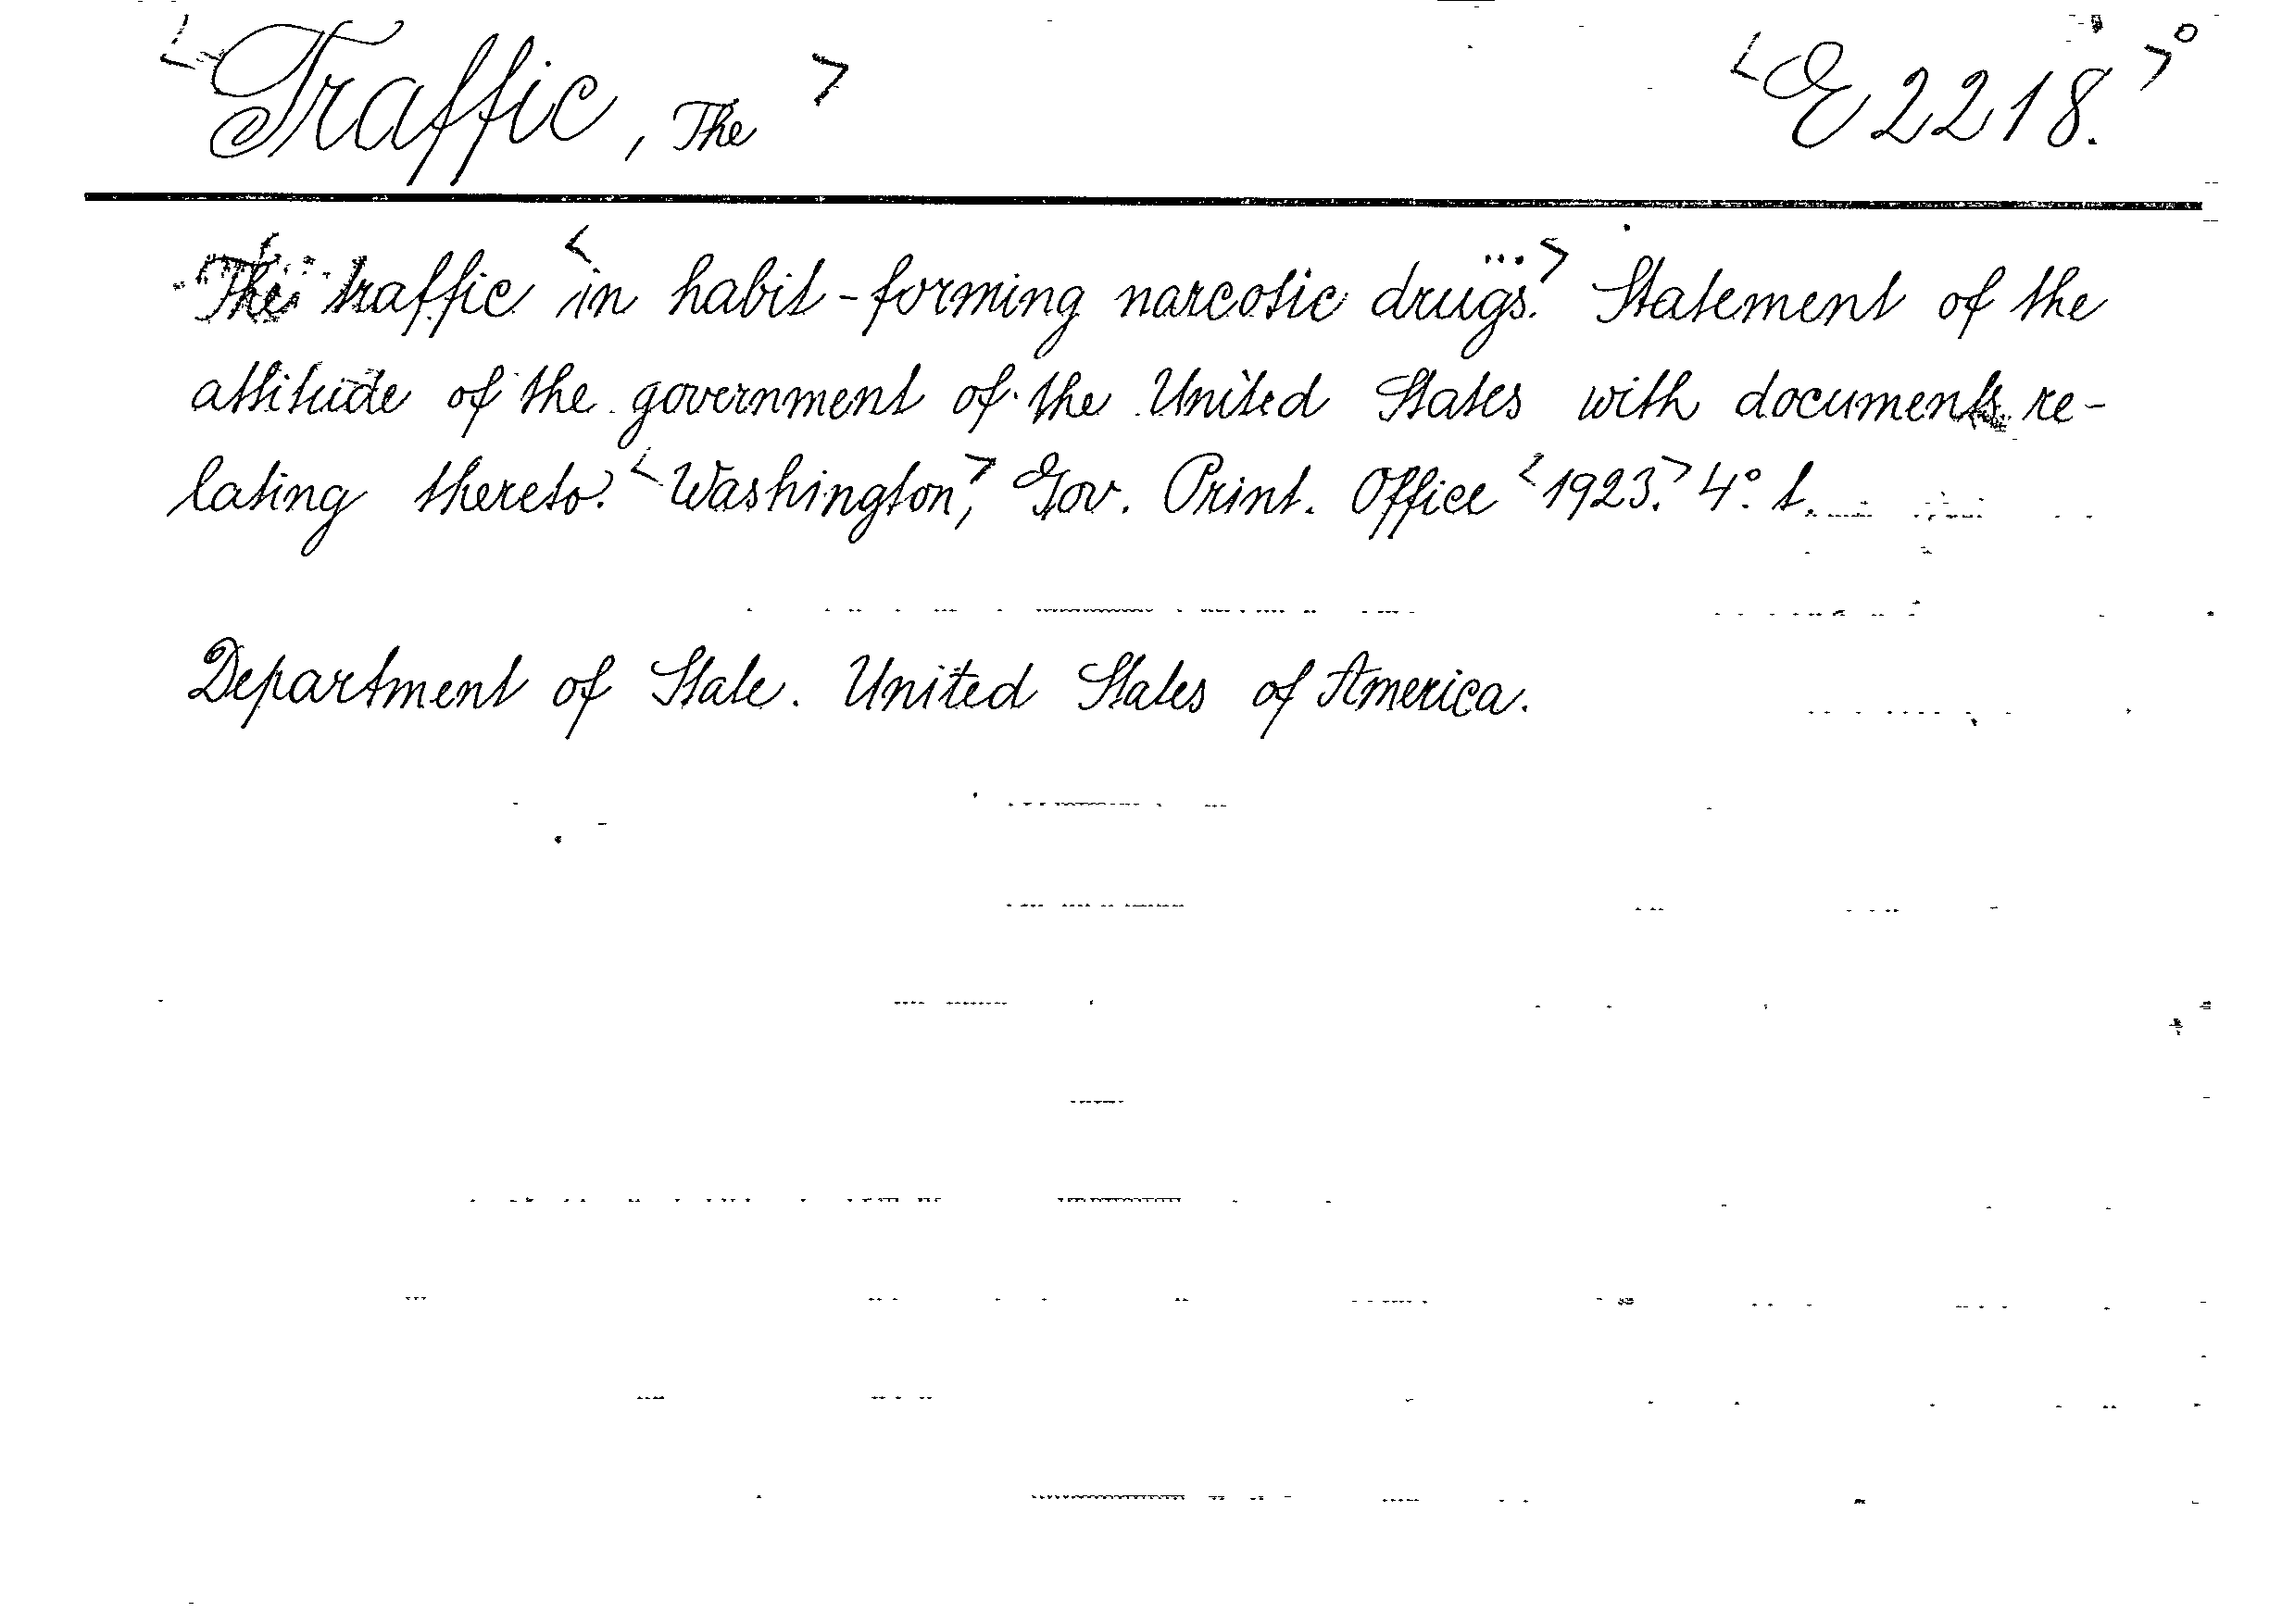 <Traffic, The> <E 2218.>°
The traffic <in habit-forming narcotic drugs. ...> Statement of the
attitude of the government of the United States with documents re-
lating thereto. <Washington,> Gov. Print. Office <1923.> 4° t.
Department of State. United States of America.